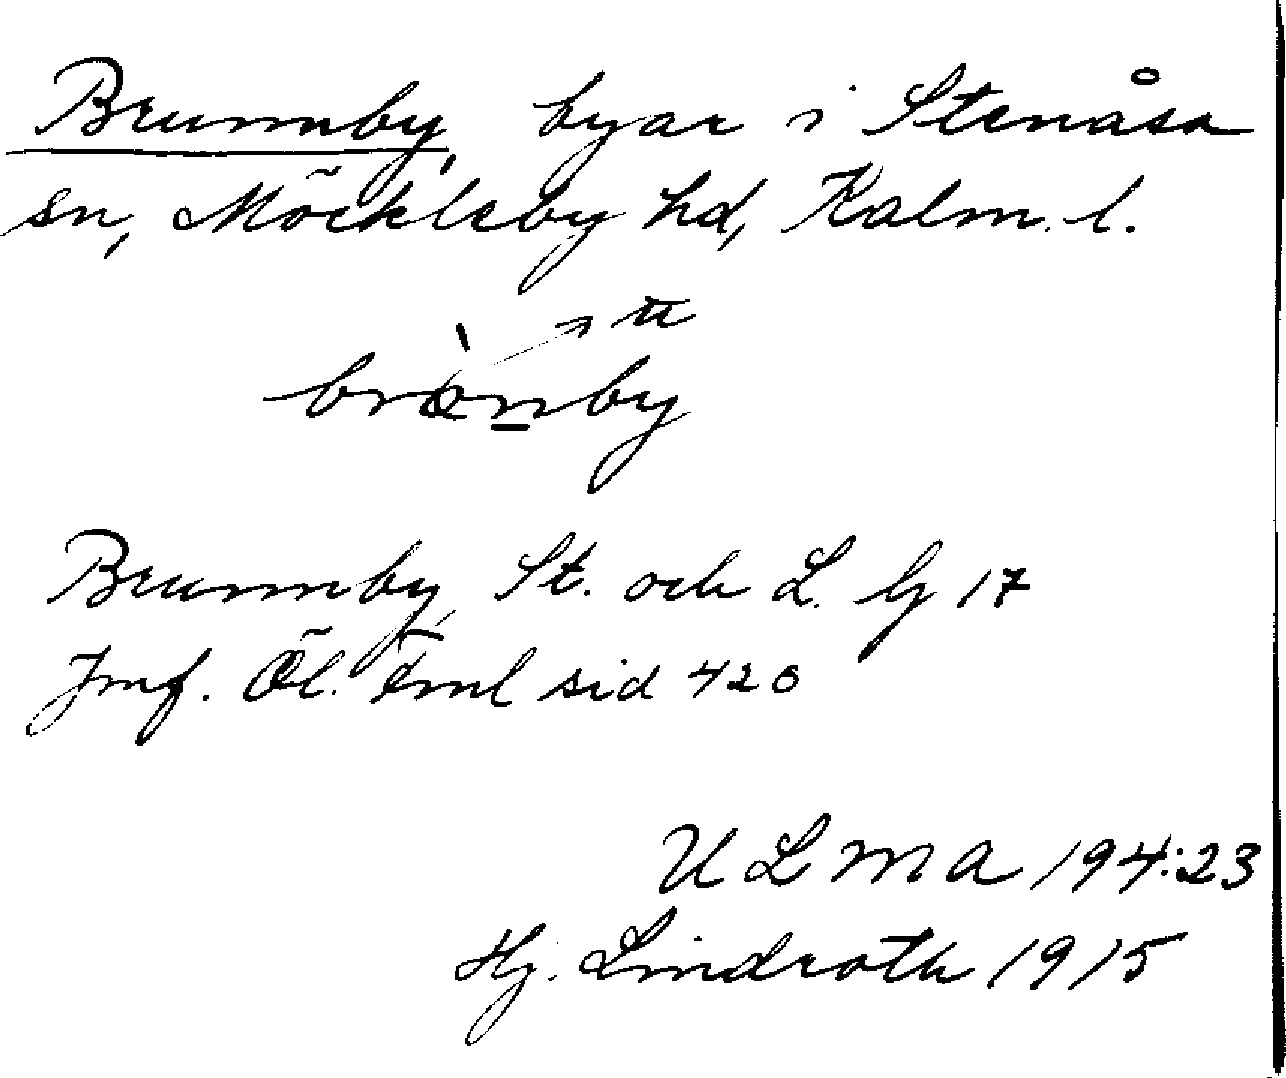 Brunnby, byar i Stenåsa
sn, Möckleby hd, Kalm. l.
brònby
Brunnby, St. och L. G 17
Jmf. Öl. Fml sid 420
ULMA 194:23
Hj. Lindroth 1915